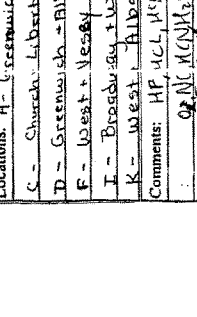 Locations: A - Greenwich
C - Church + Libert
D - Greenwich + Alb
F - West + Vesey
I - Broadway + W
K - West + Alba
Comments: HF, HCL, HC